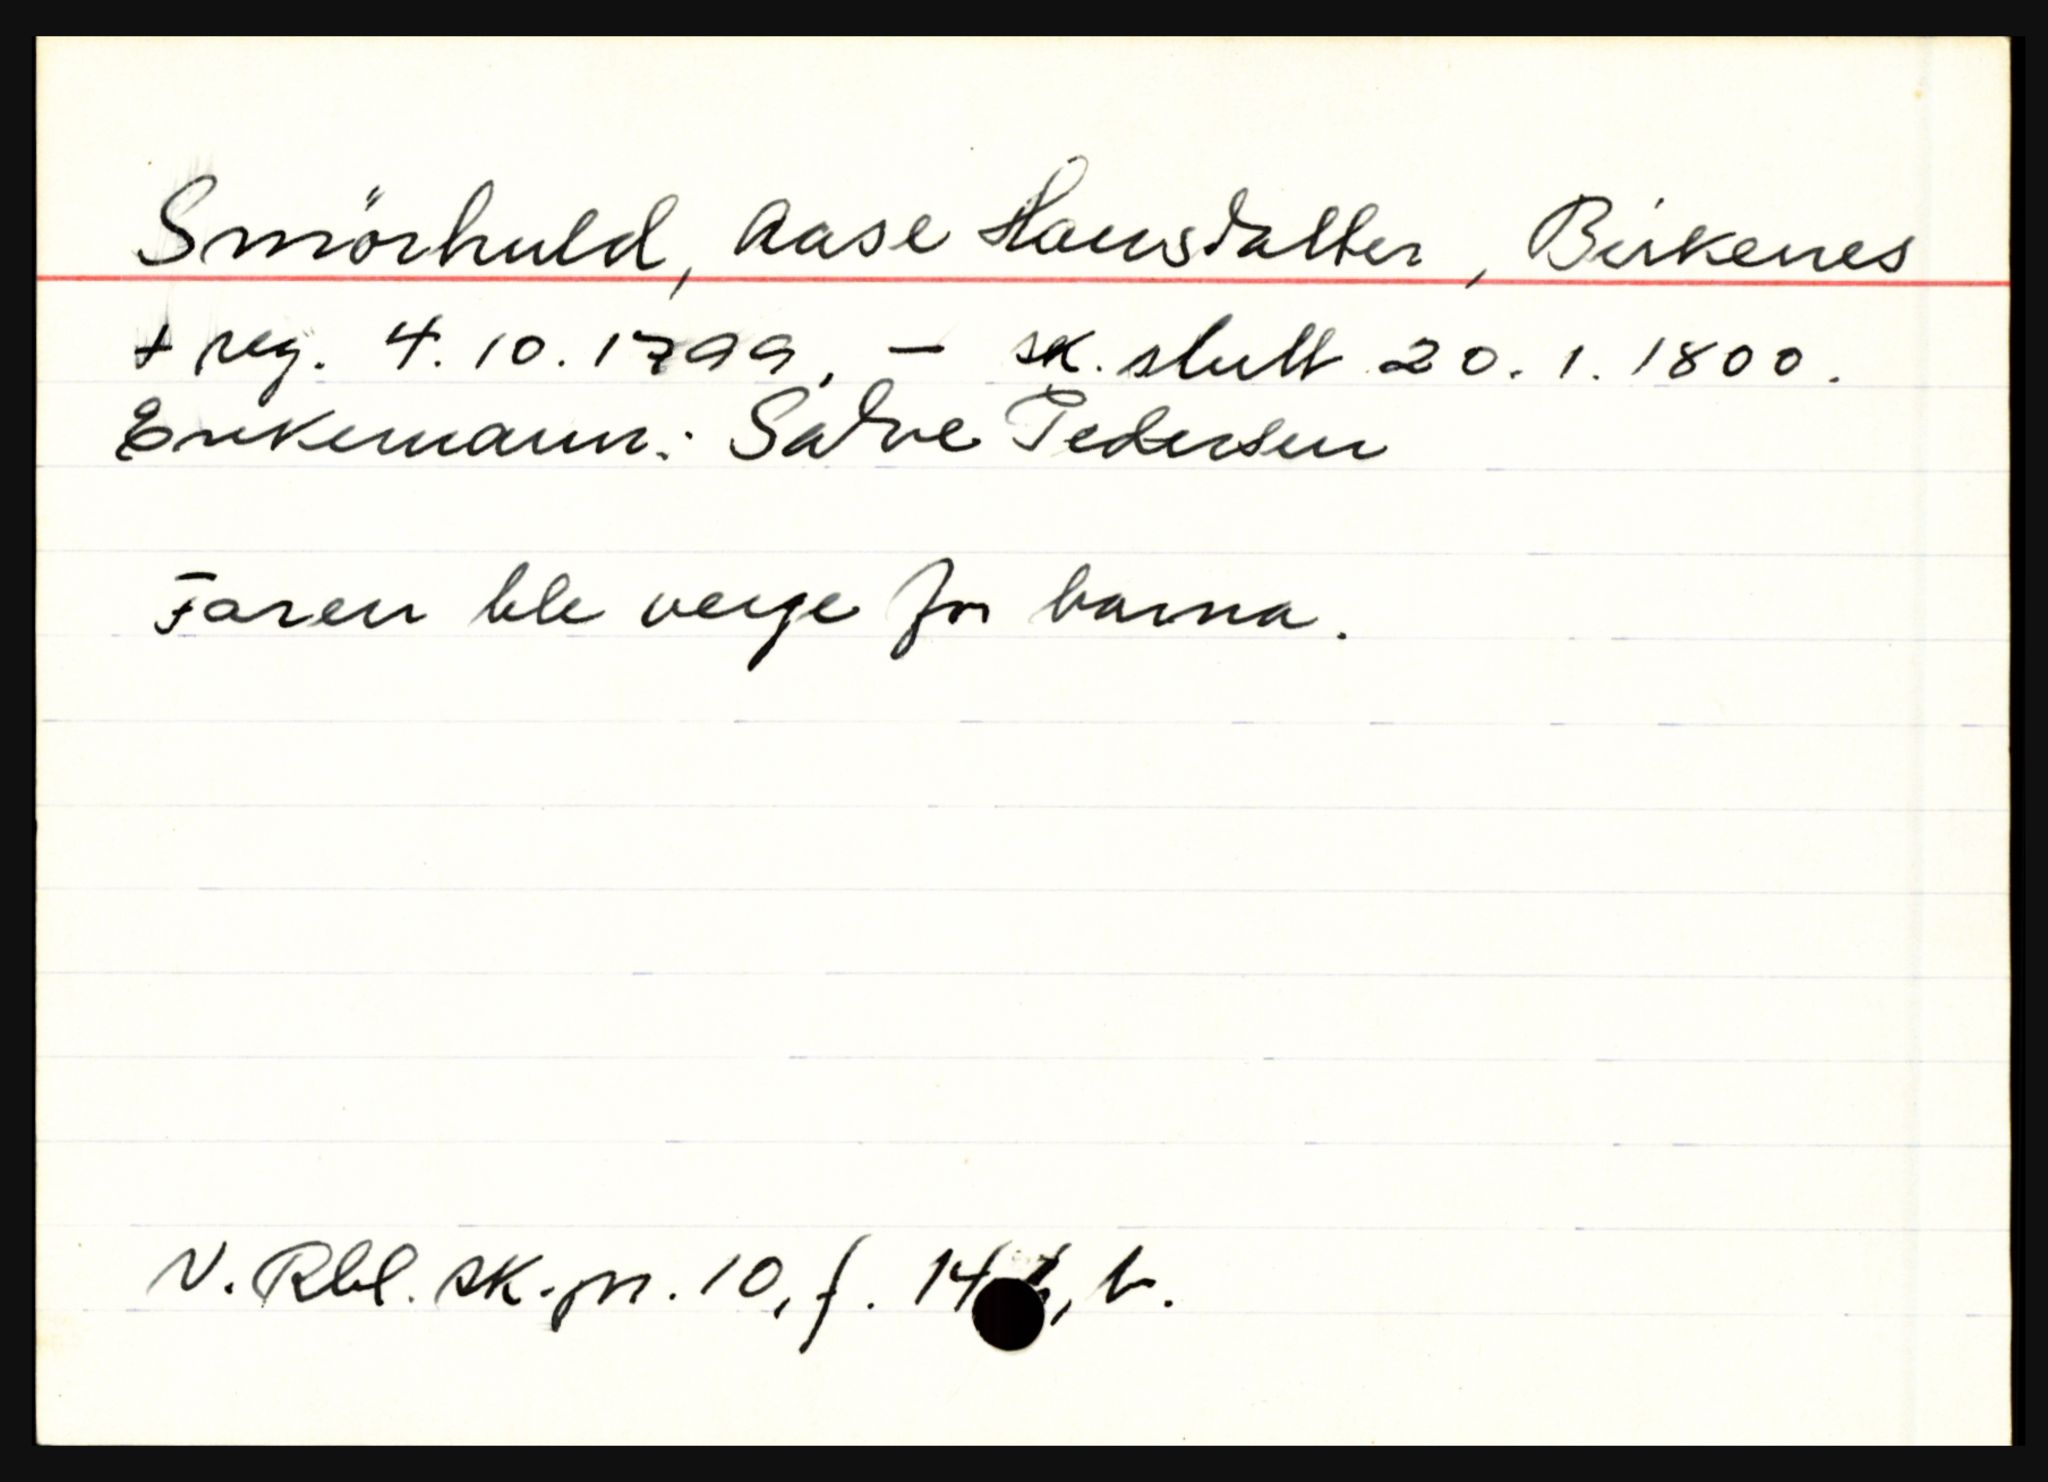 Smörhuld, Aase Hansdatter, Birkenes
+ reg. 4.10.1799, – sk. slutt 20.1.1800.
Enkemann: Salve Pedersen
Faren ble verge for barna.
N. Rbl. sk. pr. 10, f. 14 , b.